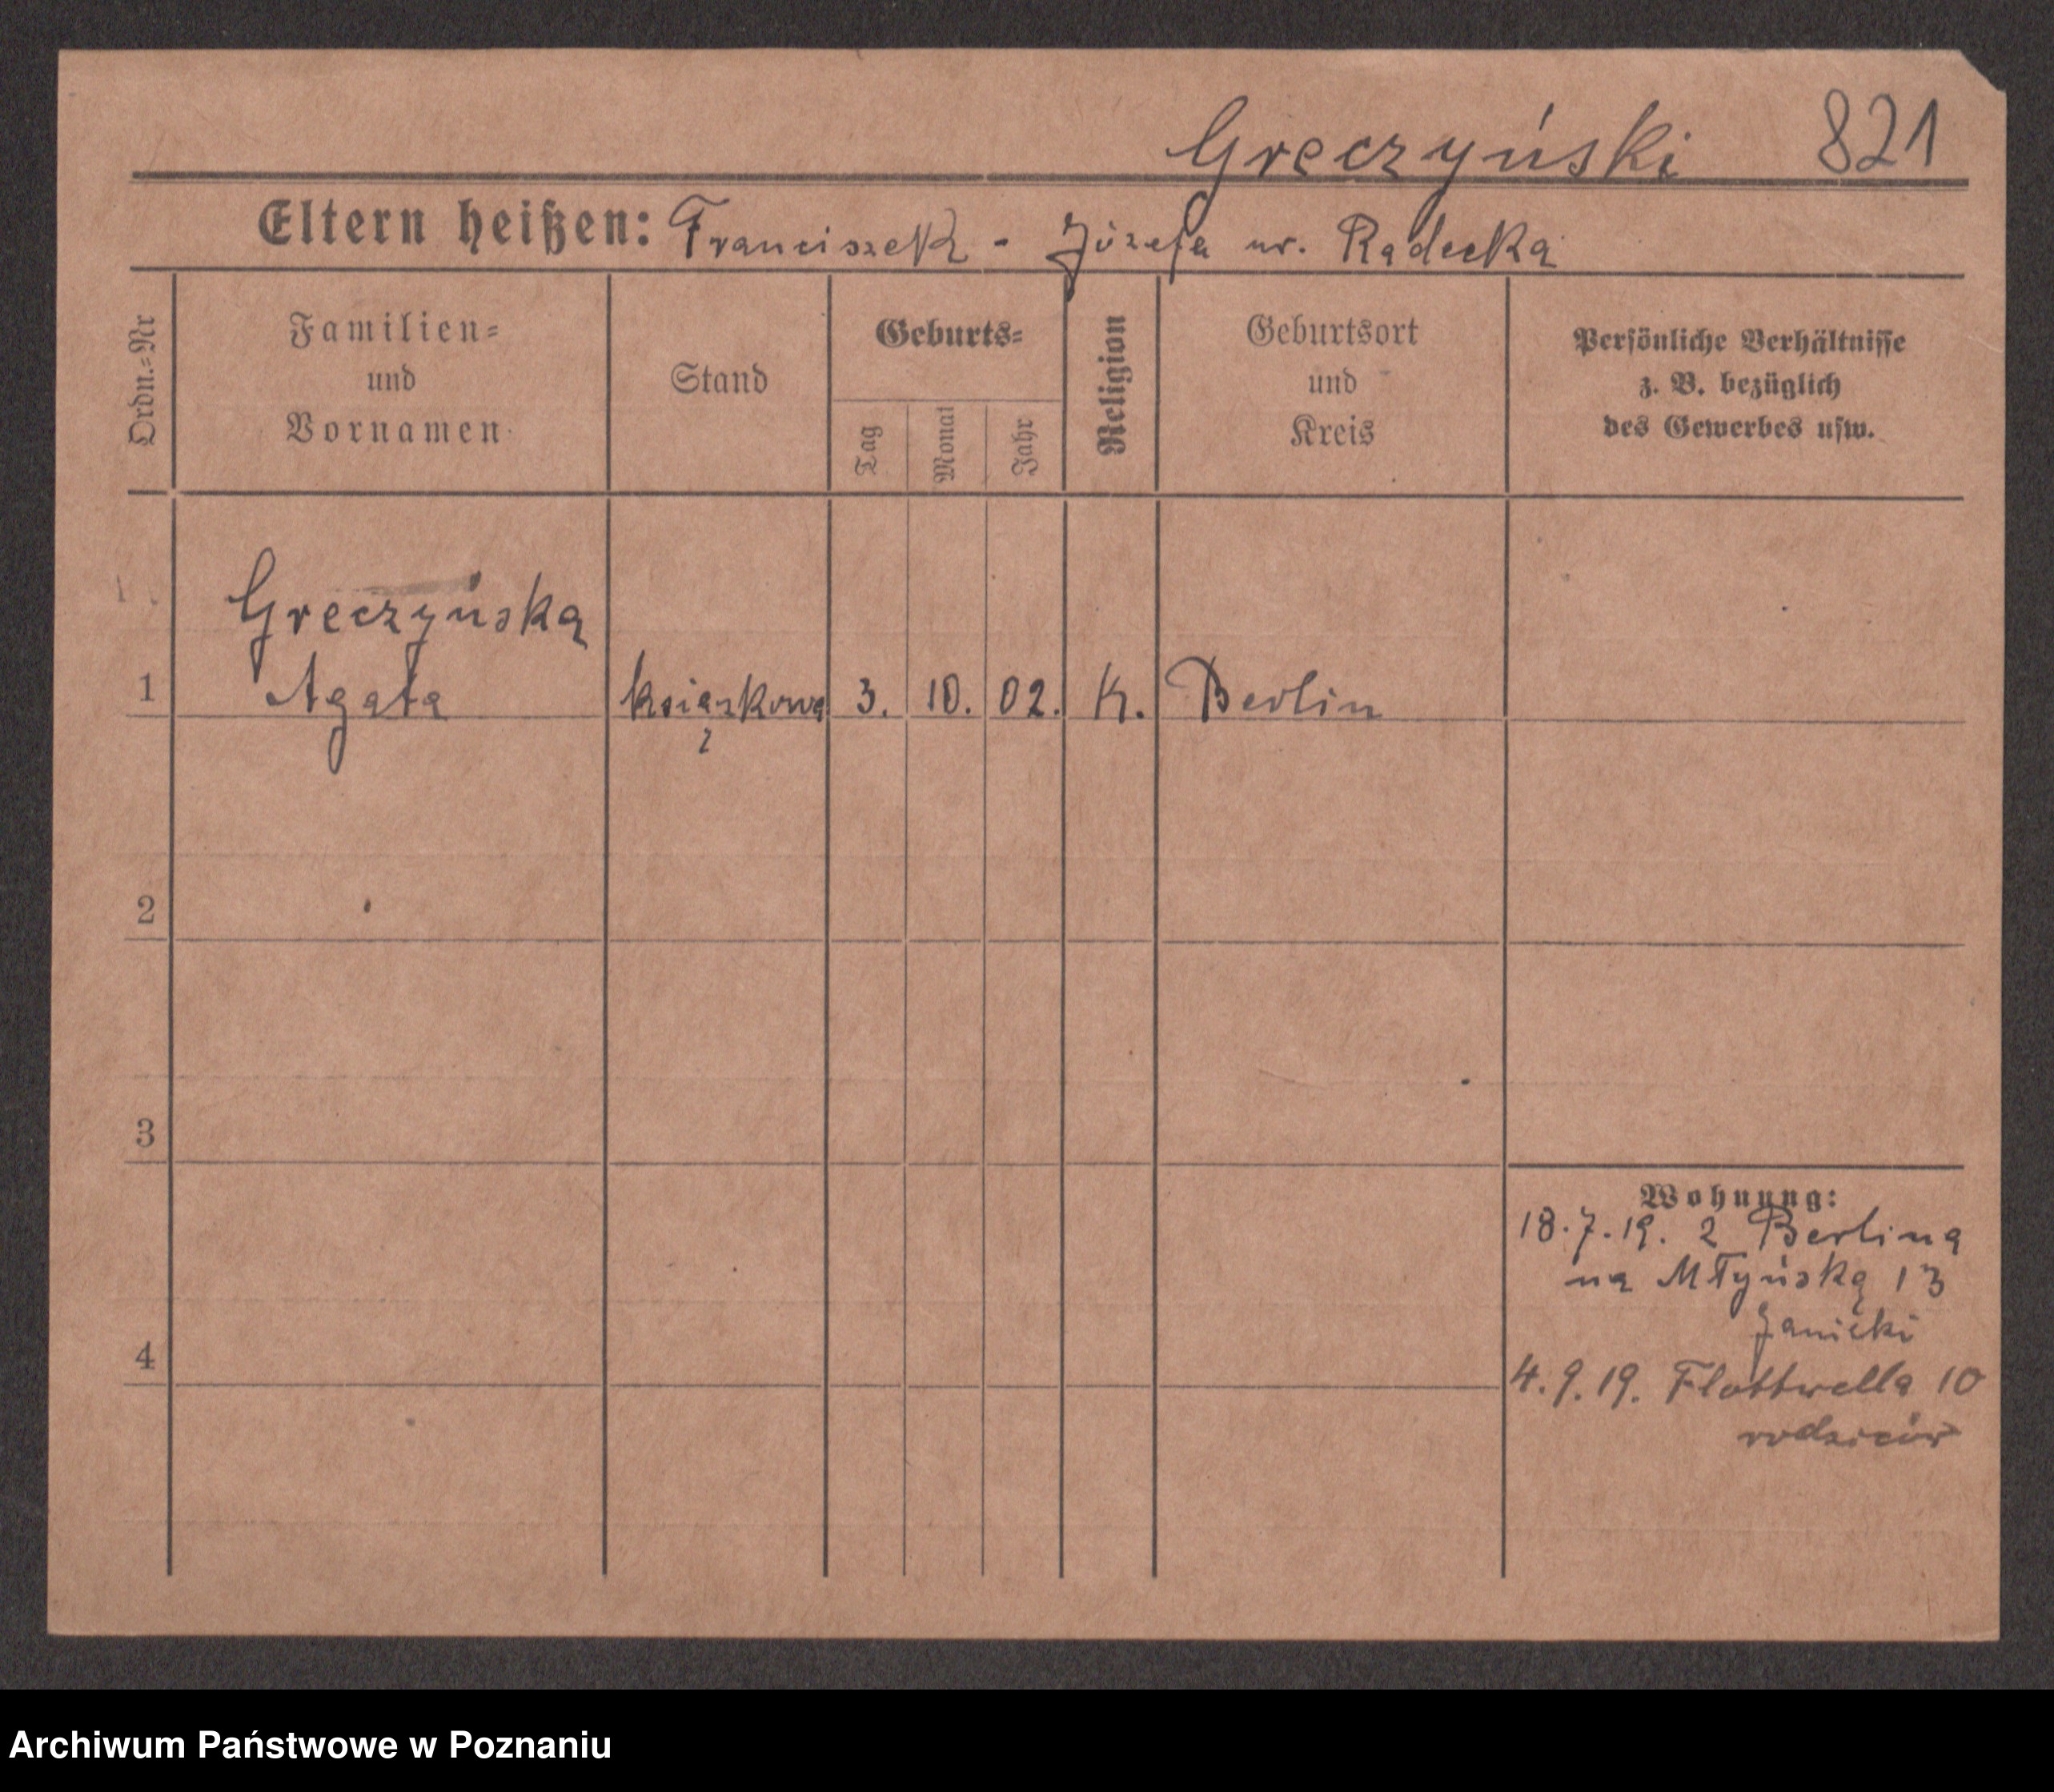 Greczyński 821
Eltern heißen: Franciszek - Józefa ur. Radecka
Ordn.=Nr
Familien=
und
Vornamen
Stand
Geburts=
Tag
Monat
Jahr
Religion
Geburtsort
und
Kreis
Persönliche Verhältnisse
z. B. bezüglich
des Gewerbes usw.
Greczyńska
1 Agata książkowa 3. 10. 02. K. Berlin
2
3
Wohnung:
18.7.19. z Berlina
na Młyńską 13
Janicki
4
4.9.19. Flottwella 10
rodziców
Archiwum Państwowe w Poznaniu